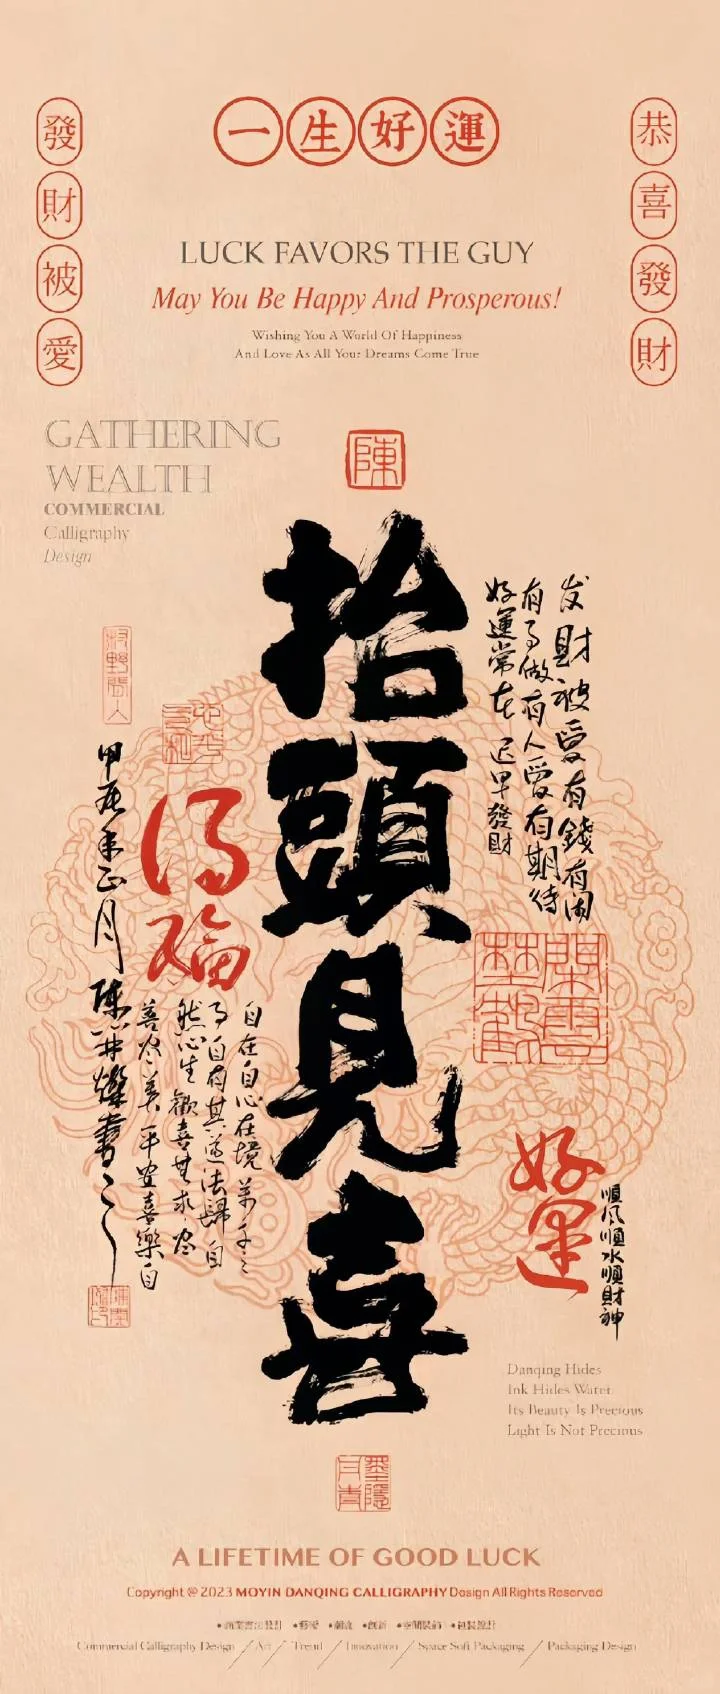 一生好運
發財被愛
恭喜發財
LUCK FAVORS THE GUY
May You Be Happy And Prosperous!
Wishing You A World Of Happiness
And Love As All Your Dreams Come True
GATHERING
WEALTH
COMMERCIAL
Calligraphy
Design
陳
抬頭見喜
发財被愛有錢有闲
有事做有人愛有期待
好運常在 迟早發財
得福
自在自心在境
然心生歡喜
善尽美平安喜樂自
年正月陳
好運
順风順水順財神
Danqing Hides
Ink Hides Water
Its Beauty Is Precious
Light Is Not Precious
A LIFETIME OF GOOD LUCK
Copyright @ 2023 MOYIN DANQING CALLIGRAPHY Design All Rights Reserved
•商業書法設計 •藝術 •潮流 •創新 •空間裝飾 •包裝設計
Commercial Calligraphy Design / Art / Trend / Innovation / Space Soft Packaging / Packaging Design